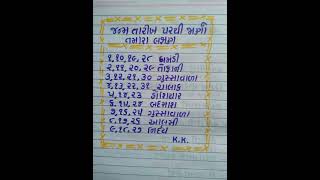 જન્મ તારીખ પરથી જાણો
તમારા લક્ષણ
૧,૧૦,૧૯,૨૮ ઘમંડી
૨,૧૧,૨૦,૨૯ તોફાની
૩,૧૨,૨૧,૩૦ ગુસ્સાવાળા
૪,૧૩,૨૨,૩૧ ચાલાક
૫,૧૪,૨૩ હોશિયાર
૬,૧૫,૨૪ બદમાશ
૭,૧૬,૨૫ ગુસ્સાવાળા
૮,૧૭,૨૬ આળસી
૯,૧૮,૨૭ નિર્દય
K.K.